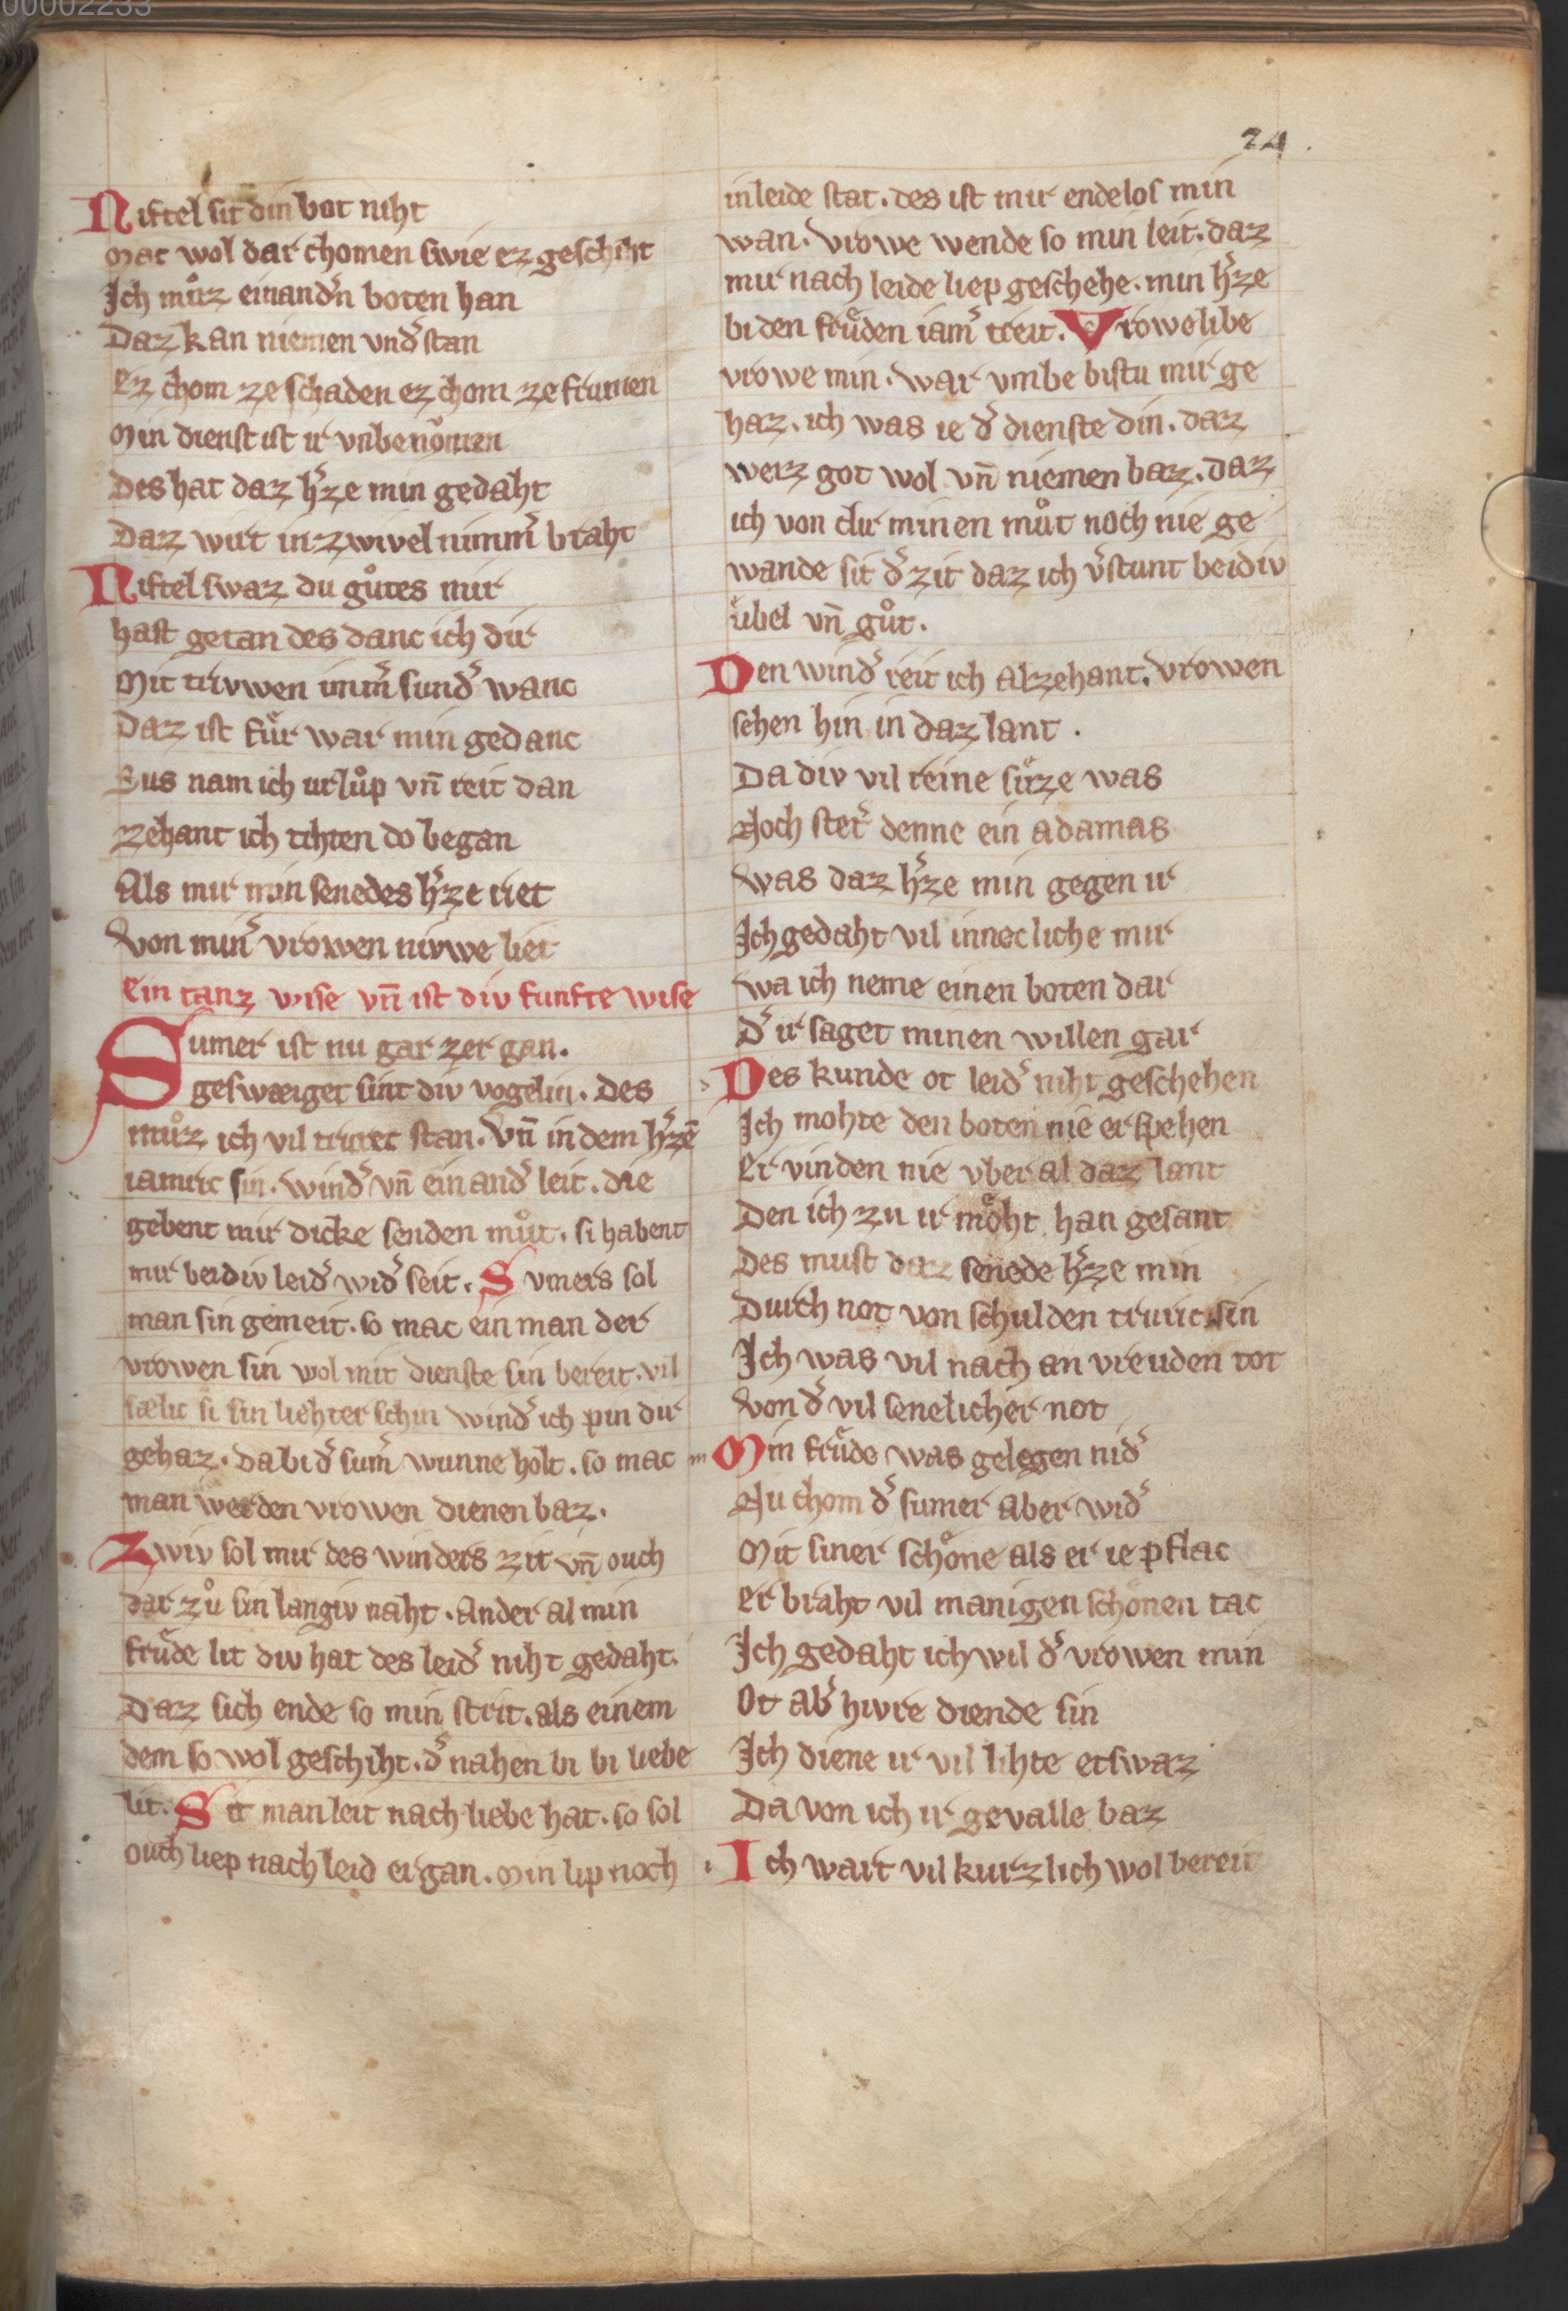 00002233
24
Niftel sit din bot niht
Mac wol dar chomen swie ez geschiht
Ich můz einandn̄ boten han
Daz kan niemen vnd͛ stan
Ez chom ze schaden ez chom ze frumen
Min dienst ist ir vnbenomen
Des hat daz h͛ze min gedaht
Daz wirt in zwivel nimm͛ braht
Niftel swaz du gůtes mir
hast getan des danc ich dir
Mit trivwen imm͛ sund͛ wanc
Daz ist fuͤr war min gedanc
Sus nam ich urlůp vn̄ reit dan
zehant ich tihten do began
Als mir min senedes h͛ze riet
Von min͛ vrowen nivwe liet
ein tanz wise vn̄ ist div funfte wise
Sumer ist nu gar zer gan.
geswæiget sint div vogelin. Des
můz ich vil truret stan. Vn̄ in dem h͛zē
iamric sin. wind͛ vn̄ ein and͛ leit. die
gebent mir dicke senden můt. si habent
mir beidiv leid͛ wid͛ seit. Svmers sol
man sin gemeit. so mac ein man der
vrowen sin wol mit dienste sin bereit. vil
sælic si sin liehter schin wind͛ ich pin dir
gehaz. Da bi d͛ sum͛ wunne holt. so mac
man werden vrowen dienen baz.
Zwiv sol mir des winders zit vn̄ ouch
dar zů sin langiv naht. Ander al min
fruͤde lit div hat des leid͛ niht gedaht.
Daz sich ende so min strit. als einem
dem so wol geschiht. d͛ nahen bi bi liebe
lit. Sit man leit nach liebe hat. so sol
ouch liep nach leid ergan. Min lip noch
in leide stat. des ist mir endelos min
wan. Vrowe wende so min leit. daz
mir nach leide liep geschehe. min h͛ze
bi den fruͤden iam͛ treit. Vrowe libe
vrowe min. war vmbe bistu mir ge
haz. ich was ie d͛ dienste din. daz
weiz got wol vn̄ niemen baz. daz
ich von dir minen můt noch nie ge
wande sit d͛ zit daz ich v͛stunt beidiv
uͤbel vn̄ gůt.
Den wind͛ reit ich alzehant. Vrowen
sehen hin in daz lant.
Da div vil reine suͤze was
Noch stet͛ denne ein adamas
Was daz h͛ze min gegen ir
Ich gedaht vil innecliche mir
wa ich neme einen boten dar
D͛ ir saget minen willen gar
Des kunde ot leid͛ niht geschehen
Ich mohte den boten nie erspehen
Er vinden nie vber al daz lant
Den ich zu ir moͤht han gesant
Des must daz senede h͛ze min
Durch not von schulden truric sin
Ich was vil nach an vreuden tot
Von d͛ vil senelicher not
m Min fruͤde was gelegen nid͛
Nu chom d͛ sumer aber wid͛
Mit siner schoͤne als er ie pflac
Er braht vil manigen schoͤnen tac
Ich gedaht ich wil d͛ vrowen min
Ot ab͛ hivre diende sin
Ich diene ir vil lihte etswaz
Da von ich ir gevalle baz
i Ich wart vil kurzlich wol bereit